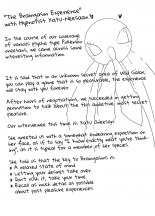 "The Braingasm Experience"
with Hypnotist Katu-Neesaam
In the course of our coverage
of various psychic type Pokémon
trainers, we came across some
interesting information.
It is said that in an unknown secret area of Wild Glade,
you can play a game that is so pleasurable, the experience
stay with you forever.
After hours of negotiations, we succeeded in getting
permission to talk about this very addictive multi secret
pleasure.
Our interviewee this time is Katu
She greeted us with a somewhat endearing expression on
her face, as if to say "I know exactly what you're thinking,"
as it is typical for a member of her species.
She told us that the key to Braingasms is:
• A relaxed state of mind
• Letting your desires take over
• Don't rush it, take your time
• Recall as much detail as possible
about past pleasure experiences.